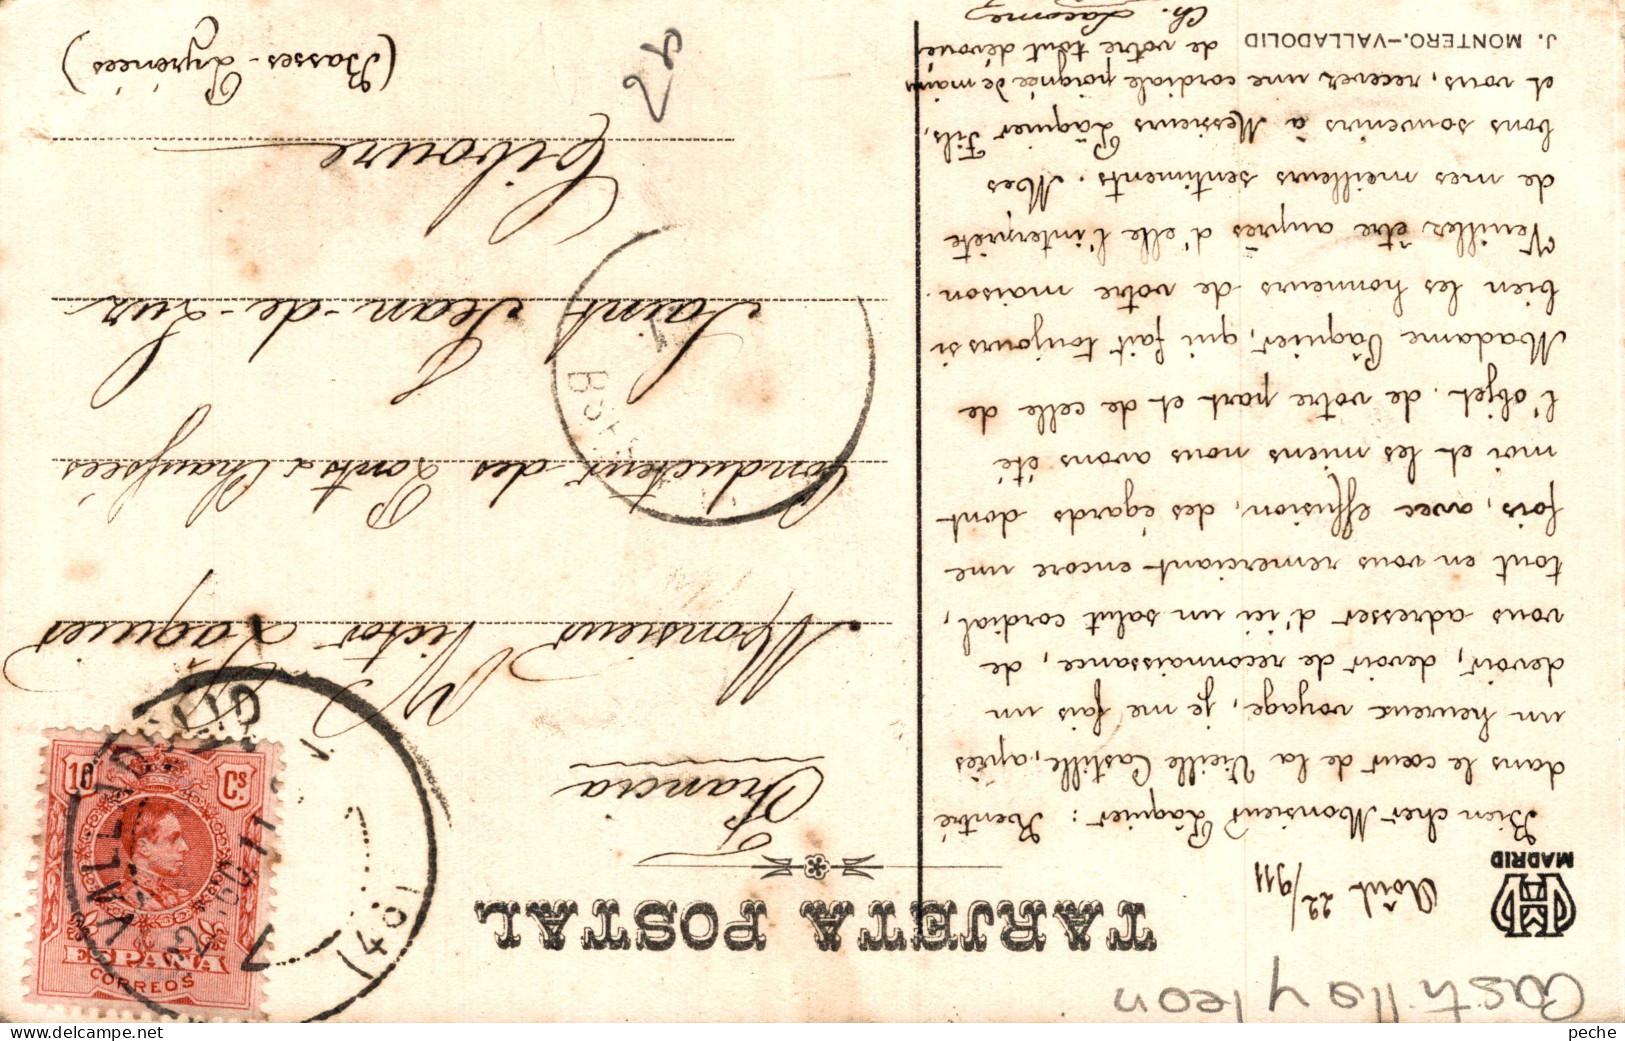 Castilla y Leon
TARJETA POSTAL
MADRID
Août 22/911
Bien cher Monsieur Pâquier : Rentré
dans le cœur de la Vieille Castille, après
un heureux voyage, je me fais un
devoir, devoir de reconnaissance, de
vous adresser d'ici un salut cordial,
tout en vous remerciant encore une
fois, avec effusion, des égards dont
moi et les miens nous avons été
l'objet de votre part et de celle de
Madame Pâquier, qui fait toujours si
bien les honneurs de votre maison.
Veuillez être auprès d'elle l'interprète
de mes meilleurs sentiments. Mes
bons souvenirs à Messieurs Pâquier Fils,
et vous, recevez une cordiale poignée de mains
de votre tout dévoué
Ch. Lacome
J. MONTERO.-VALLADOLID
Francia
Monsieur Victor Pâquier
Conducteur des Ponts & Chaussées
Saint Jean-de-Luz
Ciboure
(Basses-Pyrénées)
CORREOS
ESPAÑA
10 Cs
VALLADOLID
22 AGO 11
peche